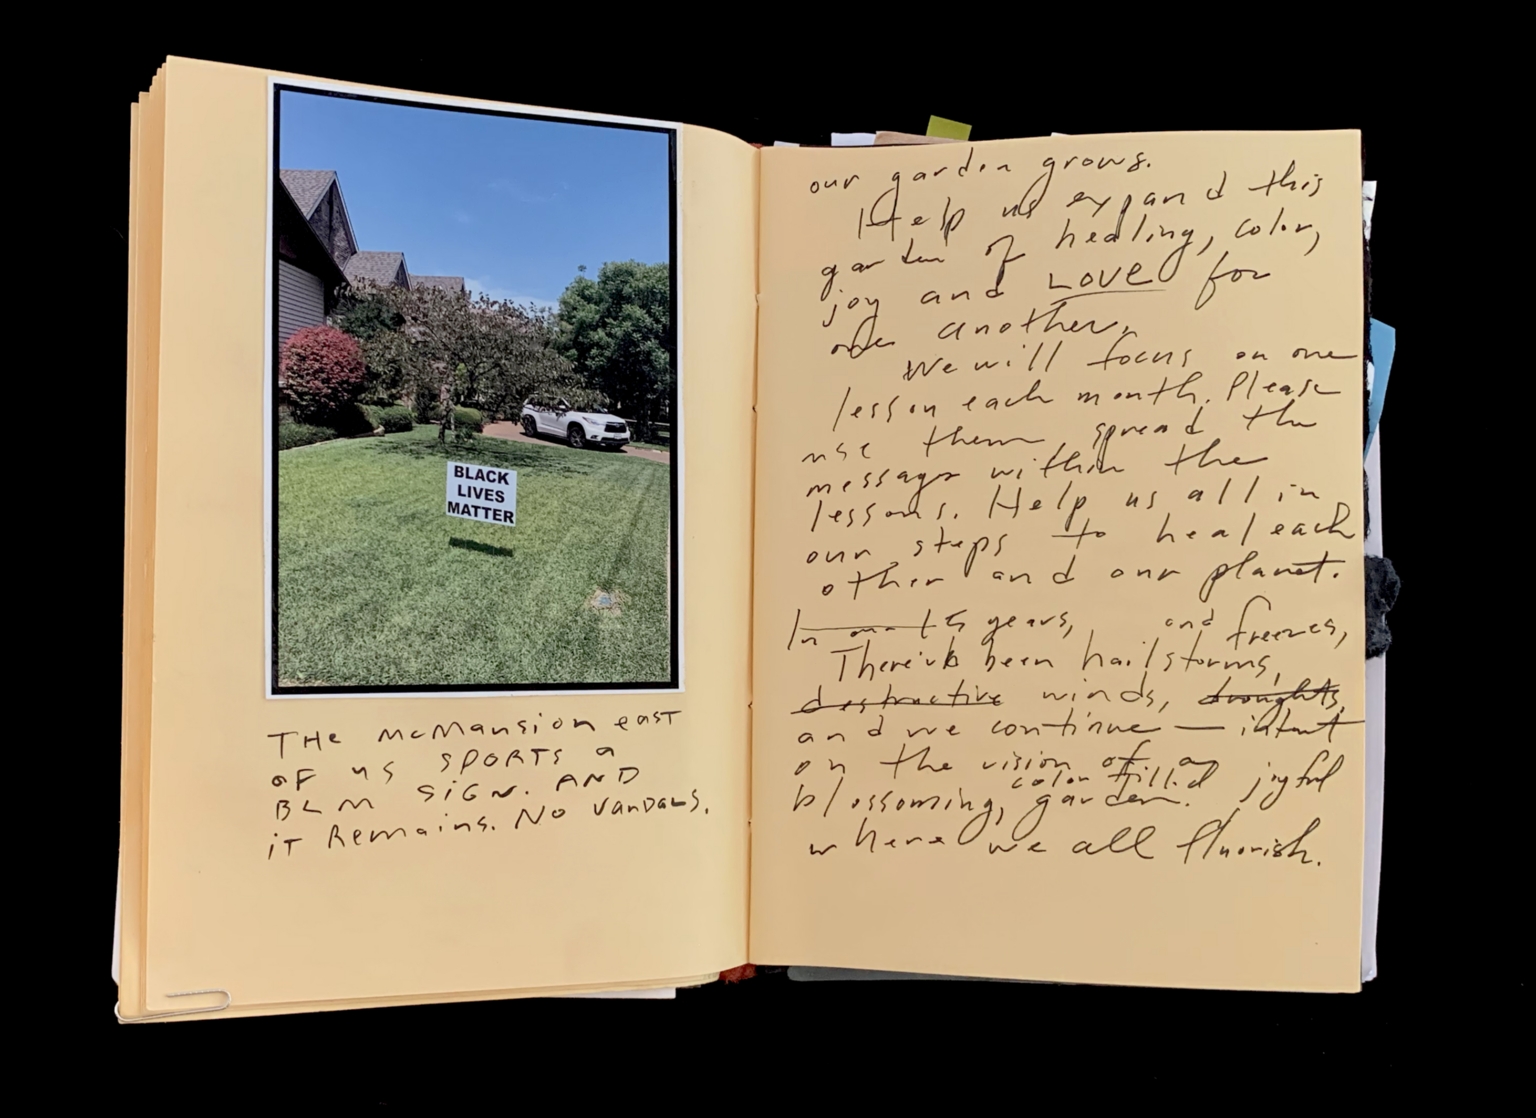 BLACK
LIVES
MATTER
THE McMansion east
OF us SPORTS a
BLM SIGN. AND
iT Remains. No VanDaLs.
our garden grows.
Help us expand this
garden of healing, color,
joy and LOVE for
one another.
We will focus on one
lesson each month. Please
use them, spread the
message within the
lessons. Help us all in
our steps to heal each
other and our planet.
In years, and freezes,
There've been hailstorms,
destructive winds, droughts,
and we continue — intent
on the vision of a
color filled joyful
blossoming, garden.
where we all fluorish.